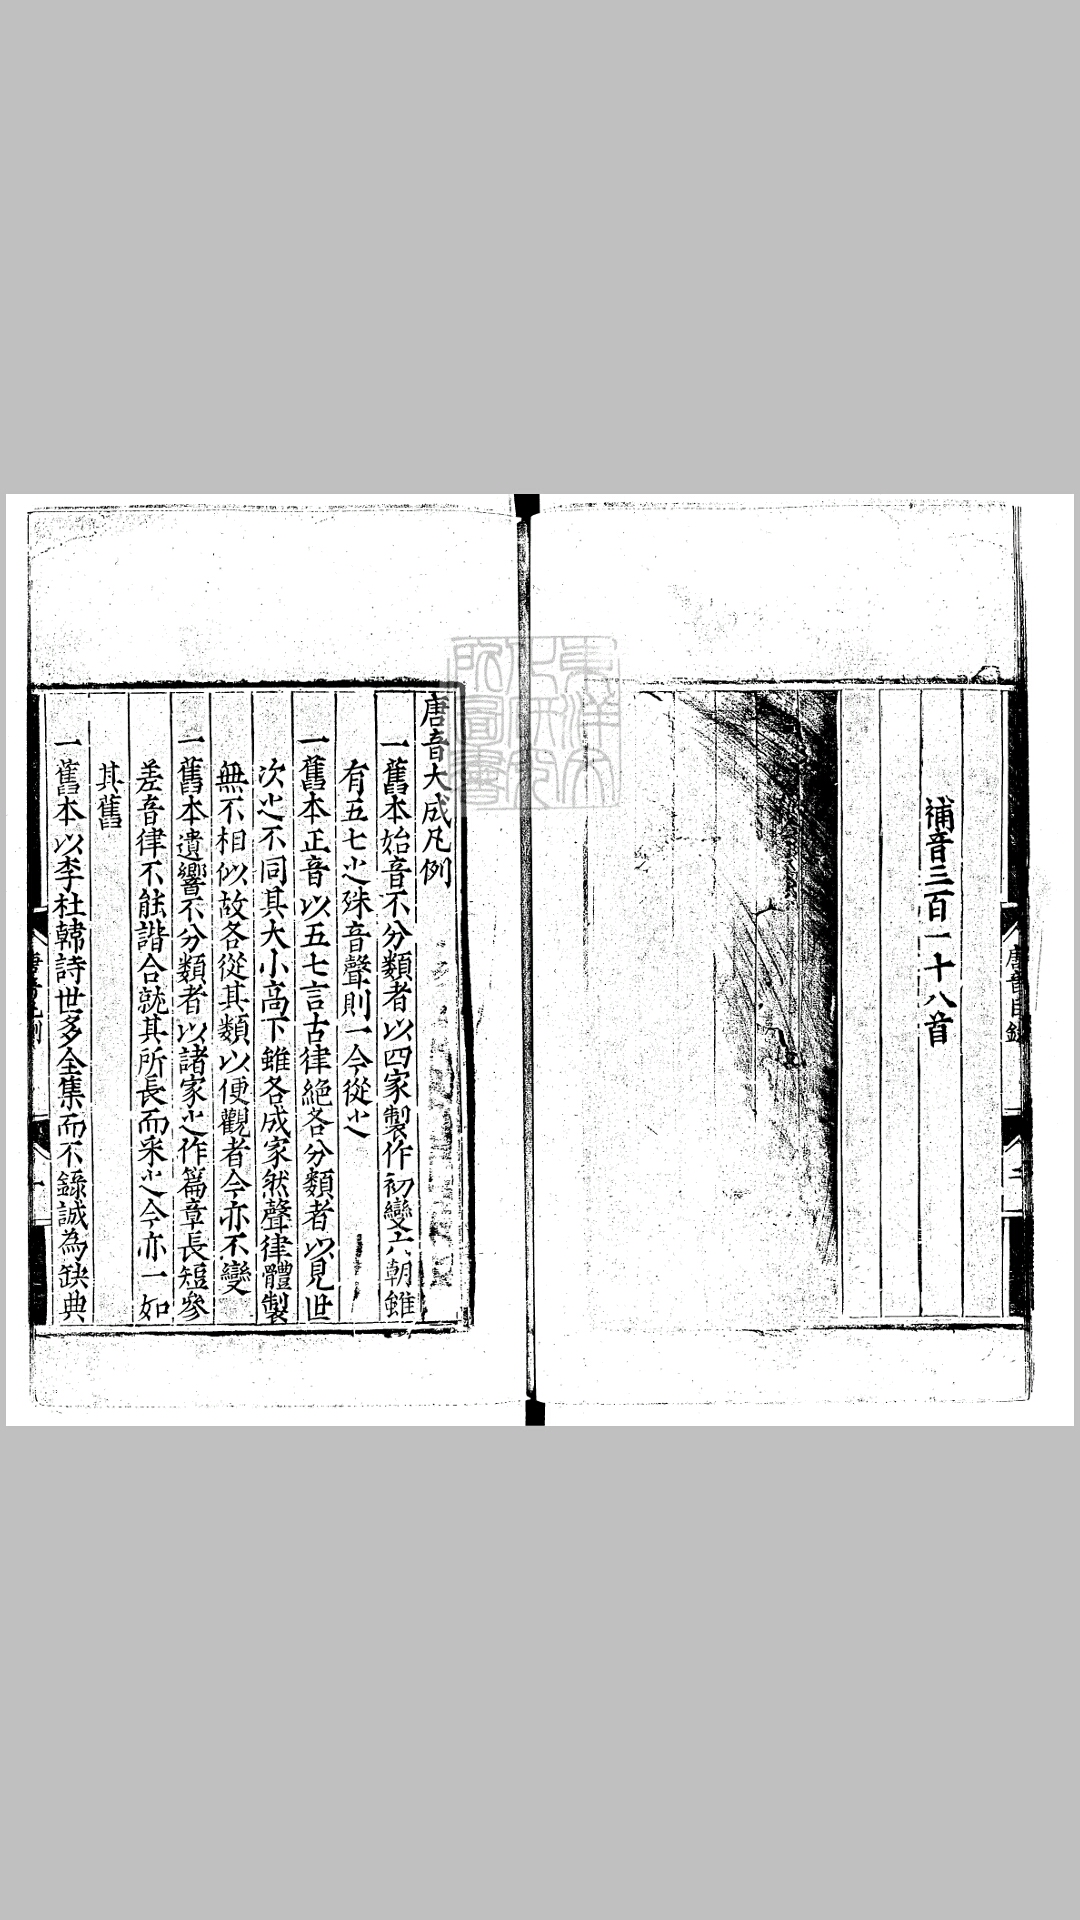 補音三百一十八首
唐音目錄
二
唐音大成凡例
一舊本始音不分類者以四家製作初變六朝雖
有五七之殊音聲則一今從之
一舊本正音以五七言古律絕各分類者以見世
次之不同其大小高下雖各成家然聲律體製
無不相似故各從其類以便觀者今亦不變
一舊本遺響不分類者以諸家之作篇章長短參
差音律不能諧合就其所長而采之今亦一如
其舊
一舊本以李杜韓詩世多全集而不錄誠為缺典